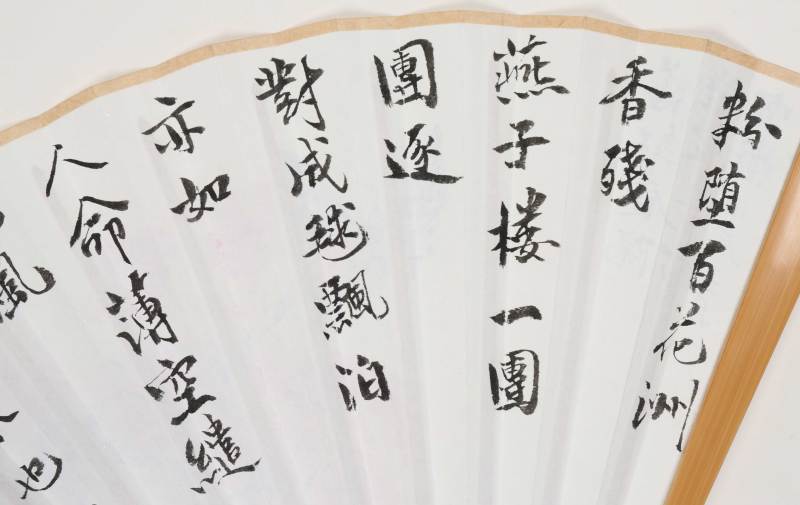 粉堕百花洲
香殘
燕子楼一團
團逐
對成球飄泊
亦如
人命薄空繾
風
也